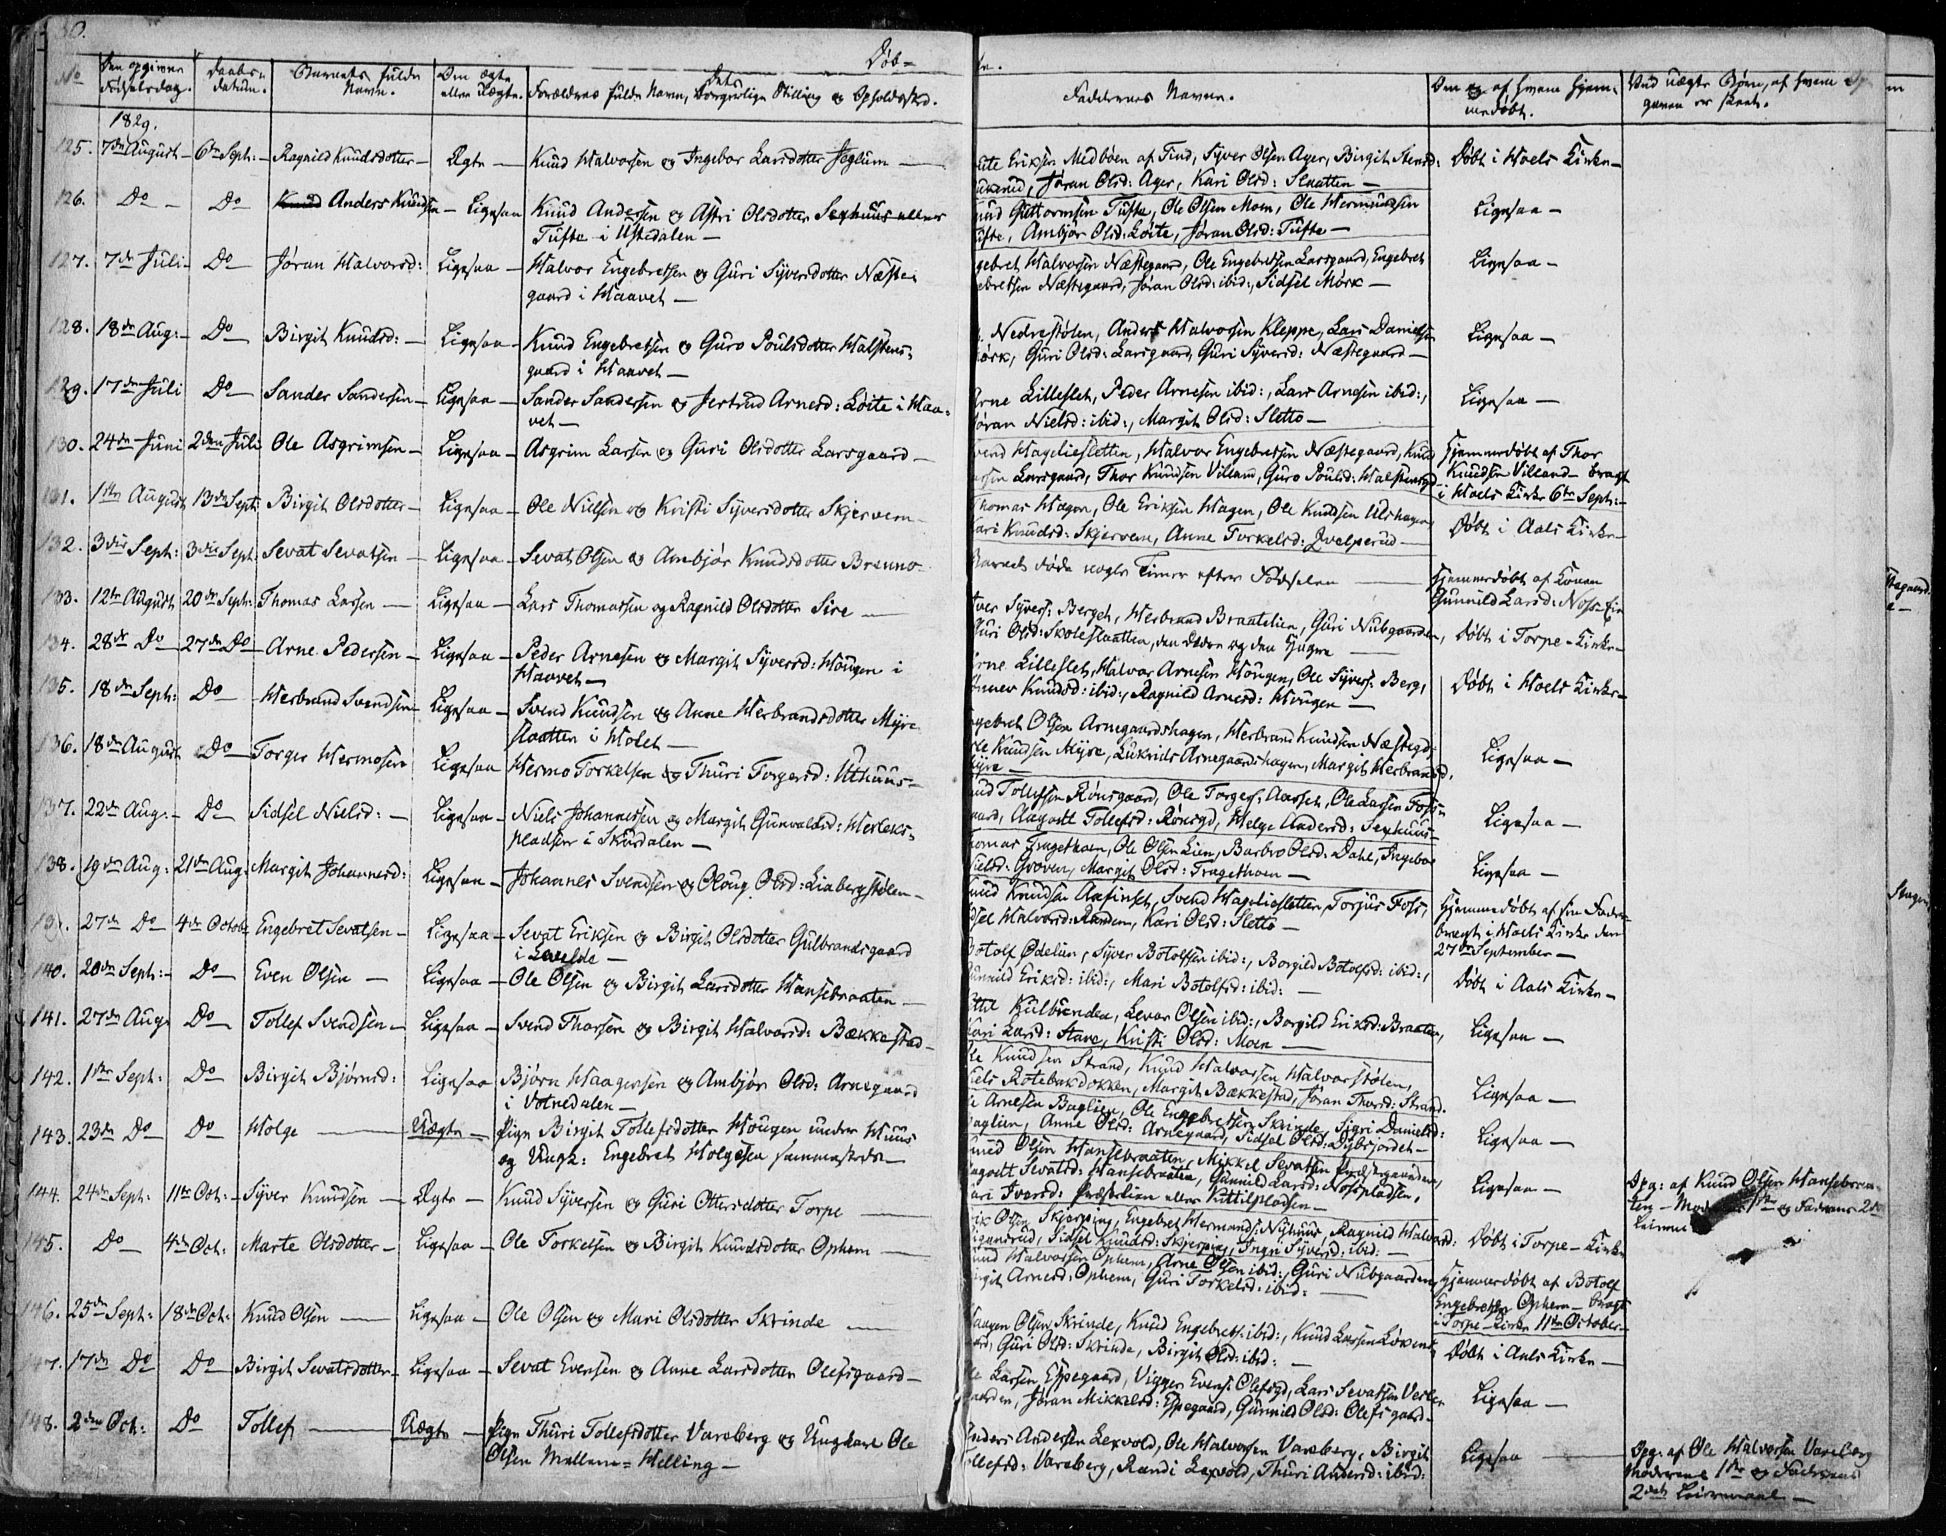 30.
Døb=
No
Den opgivne Fødselsdag.
Daabs-datum.
Barnets fulde Navn.
Den ægte eller Uægte.
Forældres fulde Navn, Dets Borgerlige Stilling og Opholdssted.
1829.
125. 7de August — 6te Sept: — Ragnild Knudsdotter — Ægte — Knud Halvorsen og Ingebor Larsdotter Jeglum —
126. Do — Do Knud Anders Knudsen — Ligesaa Knud Andersen og Astri Olsdotter Sexhuus eller
Tufte i Ustedalen —
127. 7de Juli — Do — Jøran Halvorsd: Ligesaa — Halvor Engebretsen og Guri Syversdotter Næste-
gaard i Haavet —
128. 18de Aug: — Do — Birgit Knudsd: — Ligesaa — Knud Engebretsen og Guro Poulsdotter Halstens-
gaard i Haavet —
129. 17de Juli Do — Sander Sandersen — Ligesaa — Sander Sandersen og Jertrud Arnesd: Løite i Haa-
vet —
130. 24de Juni 2den Juli Ole Asgrimsen — Ligesaa — Asgrim Larsen og Guri Olsdotter Larsgaard —
131. 1ste August 13de Sept: Birgit Olsdotter — Ligesaa — Ole Nielsen og Kristi Syversdotter Skjervem —
132. 3die Sept: 3die Sept: Sevat Sevatsen — Ligesaa — Sevat Olsen og Ambjør Knudsdotter Brenno —
133. 12te August 20de Sept: Thomas Larsen — Ligesaa — Lars Thomassen og Ragnild Olsdotter Sire —
134. 28de Do — 27de Do — Arne Pedersen — Ligesaa — Peder Arnesen og Margit Syversd: Hougen i
Haavet —
135. 18de Sept: Do — Herbrand Svendsen — Ligesaa — Svend Knudsen og Anne Herbrandsdotter Myre
slaatten i Holet —
136. 18de August Do — Torger Hermosen Ligesaa Hermo Torkelsen og Thuri Torgersd: Uthuus —
137. 22de Aug: — Do — Sidsel Nielsd: — Ligesaa — Niels Johannessen og Margit Gunvaldsd:
pladsen i Skurdalen —
138. 19de Aug: 21de Aug: Margit Johannesd: Ligesaa — Johannes Svendsen og Oloug Olsd: Liabergstølen —
139. 27de Do 4de Octobr Engebret Sevatsen — Ligesaa — Sevat Eriksen og Birgit Olsdotter Gulbrandsgaard
i
140. 20de Sept: — Do — Even Olsen — Ligesaa — Ole Olsen og Birgit Larsdotter Hansebraaten —
141. 27de Aug: Do — Tollef Svendsen — Ligesaa — Svend Thorsen og Birgit Halvorsd: Bækkestad —
142. 1ste Sept: Do — Birgit Bjørnsd: Ligesaa Bjørn Haagensen og Ambjør Olsd: Arnegaard
i Votnedalen —
143. 23de Do Do — Holge — Uægte — Pige Birgit Tollefsdotter Hougen under Huus
og Ungk: Engebret Holgesen sammesteds —
144. 24de Sept: 11te Oct: — Syver Knudsen — Ægte — Knud Syversen og Guri Ottersdotter Torpe —
145. Do — 4de Oct: Marte Olsdotter — Ligesaa — Ole Torkelsen og Birgit Knudsdotter Ophem —
146. 25de Sept: 18de Oct: Knud Olsen — Ligesaa — Ole Olsen og Mari Olsdotter Skrinde —
147. 17de Do Do Birgit Sevatsdotter — Ligesaa — Sevat Evensen og Anne Larsdotter Olefsgaard —
148. 2den Oct: Do Tollef — Uægte — Pige Thuri Tollefsdotter Varaberg og Ungkarl Ole
Olsen Mellem=Helling —
te.
Faddernes Navne.
Den og af hvem hjem-medøbt.
Ved uægte Børn, af hvem Op-gaven er skeet.
Eriksen Medbøen af Tind, Syver Olsen Ager, Birgit Stensd: Døbt i Hoels Kirke —
Jøran Olsd: Ager, Kari Olsd: Slaatten —
Guttormsen Tufte, Ole Olsen Moen, Ole Hermundsen Ligesaa —
Ambjør Olsd: Løite, Jøran Olsd: Tufte —
Halvorsen Næstegaard, Ole Engebretsen Larsgaard, Engebret Ligesaa —
Næstegaard, Jøran Olsd: ibid:, Sidsel Mørk —
Nedrestølen, Anders Halvorsen Kleppe, Lars Danielsen Ligesaa —
Guri Olsd: Larsgaard, Guri Syversd: Næstegaard —
Arne Lilleslet, Peder Arnesen ibid:, Lars Arnesen ibid:, Ligesaa —
Jøran Nielsd: ibid:, Margit Olsd: Sletto —
Svend Hagelieslætten, Halvor Engebretsen Næstegaard, Knud Hjemmedøbt af Thor
Larsgaard, Thor Knudsen Villand, Guro Poulsd: Halstensgd Knudsen Villand — bragt
i Hoels Kirke 6te Sept: —
Thomas Hagen, Ole Eriksen Hagen, Ole Knudsen Ulshagen Døbt i Aals Kirke —
Kari Knudsd: Skjervem, Anne Torkelsd: Qvelprud —
Barnet døde nogle Timer efter Fødselen — Hjemmedøbt af Konen
Gunnild Larsd: Noss
Syvers: Berget, Herbrand Braatelien, Guri Nubgaarden, Døbt i Torpe-Kirke —
Guri Olsd: Skoleslaatten, den ældre og den yngre —
Arne Lilleslet, Halvor Arnesen Hougen, Ole Syvers: Berg, Døbt i Hoels Kirke —
Knudsd: ibid:, Ragnild Arnesd: Hougen —
Olsen Arnegaardshagen, Herbrand Knudsen Næstegd: Ligesaa —
Knudsen Myre, Arnegaardshagen, Margit Herbrandsd.
Tollefsen Rønsgaard, Ole Torgers: Aarset, Ole Larsen Foss- Ligesaa —
Aagodt Tollefsd: Rønsgd, Helge Andersd: Sexhuus —
Tragethoen, Ole Olsen Lien, Barbro Olsd: Dahl, Ingebor Ligesaa —
Grøven, Margit Olsd: Tragethoen —
Knudsen Aafinset, Svend Hagelieslætten, Torjus Foss, Hjemmedøbt af sin Fader
Halvorsd: Randen, Kari Olsd: Sletto — bragt i Hoels Kirke den
27de September —
Botolf Ødelien, Syver Botolfsen ibid:, Borgild Botolfsd: ibid:, Døbt i Aals Kirke —
Gunnild Eriksd: ibid:, Mari Botolfsd: ibid: —
Kulbrænden, Levor Olsen ibid:, Borgild Eriksd: Braaten, Ligesaa —
Kari Larsd: Stave, Kristi Olsd: Moen —
Ole Knudsen Strand, Knud Halvorsen Halvorstølen, Ligesaa —
Niels Rotebakdokken, Margit Bækkestad, Jøran Thorsd: Strand.
Arnesen Baglien, Ole Engebretsen Skrinde, Sigri Danielsd: Ligesaa —
Baglien, Anne Olsd: Arnegaard, Sidsel Olsd: Dybsjordet —
Knud Olsen Hansebraaten, Mikkel Sevatsen Præstegaarden, Ligesaa — Opg: af Knud Olsen Hansebraa-
Aagodt Sevatsd: Hansebraaten, Gunnild Larsd: Nosspladsen, ten — 1ste og Faderens 2det
Kari Iversd: Præstelien eller Kittilspladsen — Leierm
Olsen Skjerping, Engebret Hermands: Nyhuus, Ragnild Halvorsd: Døbt i Torpe-Kirke
Sidsel Knudsd: Skjerping, Inge Syversd: ibid: —
Knud Halvorsen Ophem, Arne Olsen ibid:, Guri Nubgaarden, Hjemmedøbt af Botolf
Birgit Arnesd: Ophem, Guri Torkelsd: ibid: — Engebretsen Ophem — bragt
i Torpe-Kirke 11te October —
Haagen Olsen Skrinde, Knud Engebrets: ibid:, Knud Larsen Døbt i Aals Kirke —
Guri Olsd: Skrinde, Birgit Olsd: ibid: —
Ole Larsen Espegaard, Vigger Evens: Olefsgd, Lars Sevatsen Ligesaa —
Jøran Mikkelsd: Espegaard, Gunnild Olsd: Olefsgaard —
Anders Andersen Lexvold, Ole Halvorsen Varaberg, Birgit Ligesaa — Opg: af Ole Halvorsen Varaberg
Tollefsd: Varaberg, Randi Lexvold, Thuri Andersd: ibid: Moderens 1ste og Faderens
2det Leiermaal —